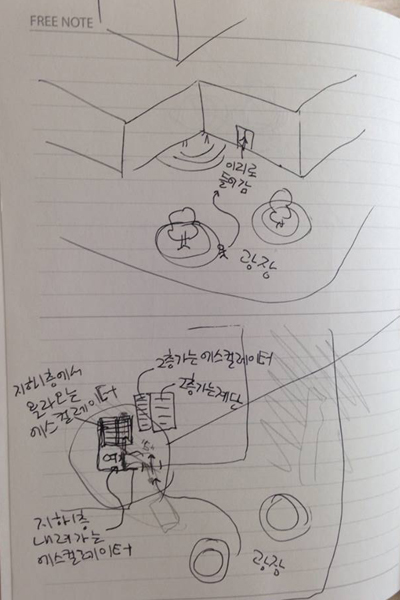 FREE NOTE
이리로
들어감
광장
2층가는에스컬레이터
2층가는계단
지하1층에서
올라오는
에스컬레이터
여기
지하1층
내려가는
에스컬레이터
광장